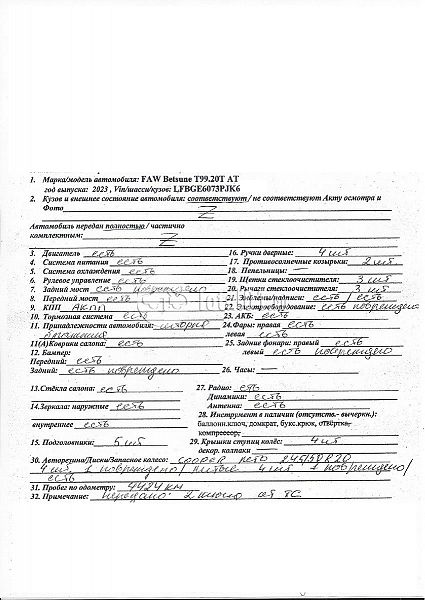 1. Марка/модель автомобиля: FAW Betsune T99.20T AT
год выпуска: 2023 , Vin/шасси/кузов: LFBGE6073PJK6
2. Кузов и внешнее состояние автомобиля: соответствуют / не соответствуют Акту осмотра и
Фото Z
Автомобиль передан полностью / частично
комплектным: Z
3. Двигатель есть
4. Система питания есть
5. Система охлаждения есть
6. Рулевое управление есть
7. Задний мост есть повреждено
8. Передний мост есть
9. КПП АКПП
10. Тормозная система есть
11. Принадлежности автомобиля: шторка
багажника
11(А)Коврики салона: есть
12. Бампер:
Передний: есть
Задний: есть повреждено
13.Стёкла салона: есть
14.Зеркала: наружные есть
внутреннее есть
15. Подголовники: 5 шт
16. Ручки дверные: 4 шт
17. Противосолнечные козырьки: 2 шт
18. Пепельницы: —
19. Щетки стеклоочистителя: 3 шт
20. Рычаги стеклоочистителя: 3 шт
21. Эмблемы/надписи: есть / есть
22. Электрооборудование: есть повреждено
23. АКБ: есть
24.Фары: правая есть
левая есть
25. Задние фонари: правый есть
левый есть повреждено
26. Часы: —
27. Радио: есть
Динамики: есть
Антенна: есть
28. Инструмент в наличии (отсутств.- вычеркн.):
баллонн.ключ, домкрат, букс.крюк, отвёртка,
компрессор;
29. Крышки ступиц колёс: 4 шт
декор. колпаки —
30. Авторезина/Диски/Запасное колесо: COOPER лето 245/50R20
4 шт, 1 повреждено/ литые 4 шт 1 повреждено/
есть
31. Пробег по одометру: 4424 км
32. Примечание: передано: 2 ключа от ТС.